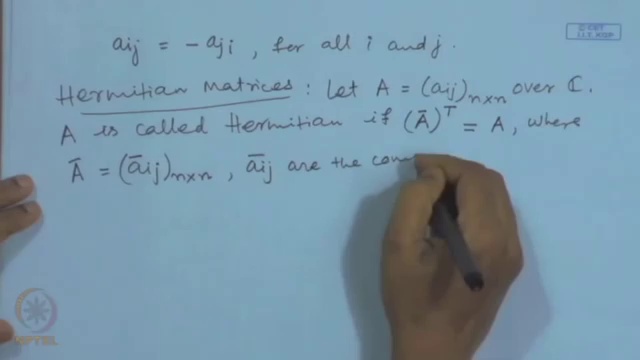 © CET
I.I.T. KGP
aij = - aji, for all i and j.
Hermitian Matrices : Let A = (aij)n×n over ℂ.
A is called Hermitian if (Ā)ᵀ = A, where
Ā = (āij)n×n, āij are the com
NPTEL